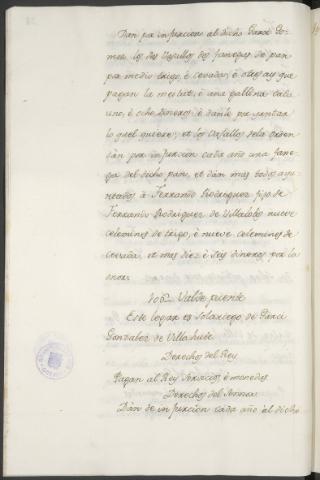 Dan por infurcion al dicho Garci Go-
mez los dos vasallos dos fanegas de pan
por medio trigo, é cevada, é otros ay que
pagan la meitat, é una gallina cada
uno, é ocho dineros: é danle por yantar
lo quel quiere; et los vasallos de la orden
dan por infurcion cada año una fane-
ga del dicho pan, et dan mas todos ayu-
ntados á Ferrando Rodriguez fijo de
Ferrando Rodriguez de Villalobos nueve
celemines de trigo, é nueve celemines de
cevada, et mas diez é seis dineros por la
onor.
Valde puente
Este logar es Solariego de Garci
Gonzalez de
Derechos del Rey
Pagan al Rey servicios é monedas
Derechos del Sennor
Dan de infurcion cada año al dicho